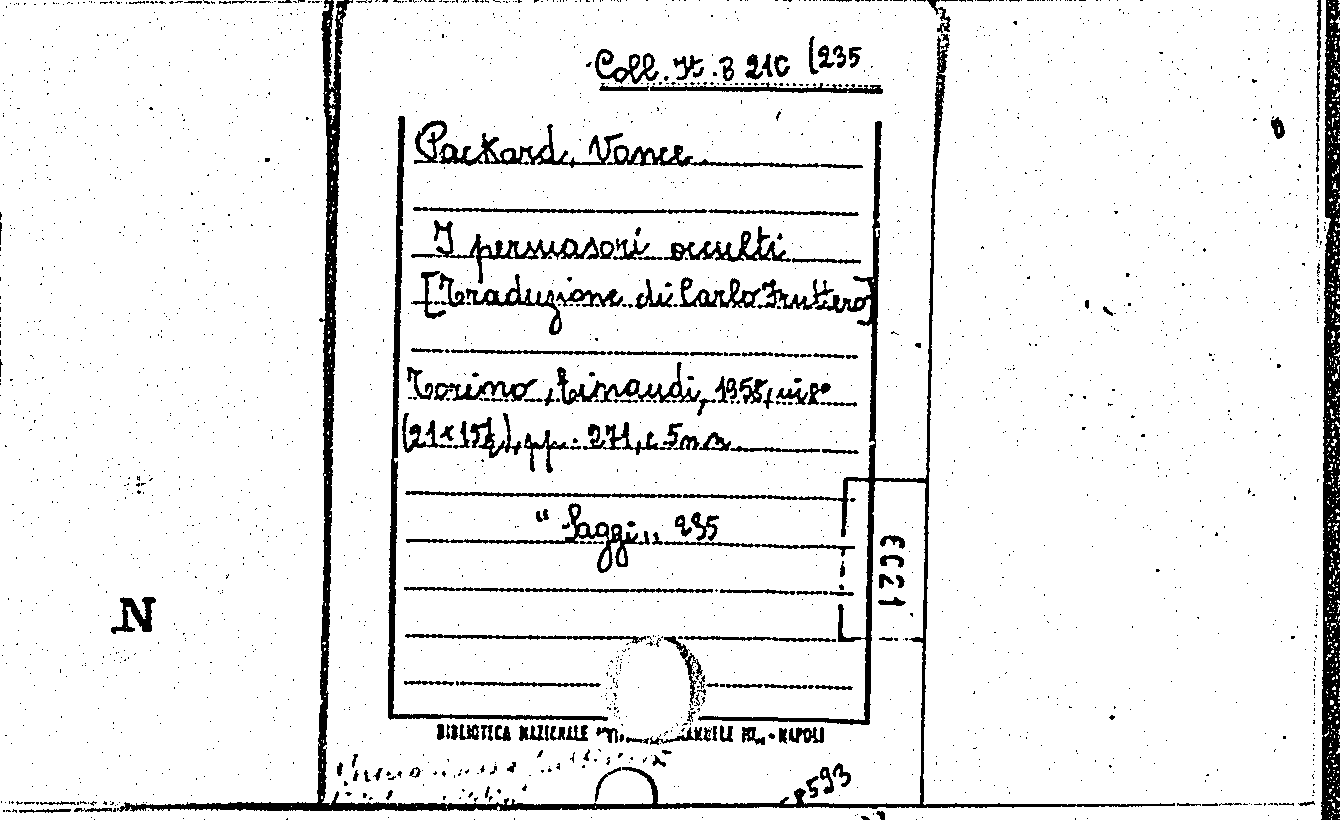 Coll. It. B 21C (235
Packard, Vance
I persuasori occulti
[Traduzione di Carlo Fruttero]
Torino, Einaudi, 1958, in 8°
(21x15½), pp. 271, c. 5 n.n.
"Saggi„ 235
EC21
N
BIBLIOTECA NAZIONALE - NAPOLI
8593